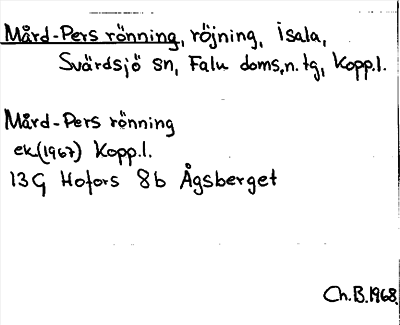 Mård-Pers rönning, röjning, Isala,
Svärdsjö sn, Falu doms.n.tg, Kopp.l.
Mård-Pers rönning
ek.(1967) Kopp.l.
13G Hofors 8b Ågsberget
Ch.B.1968.